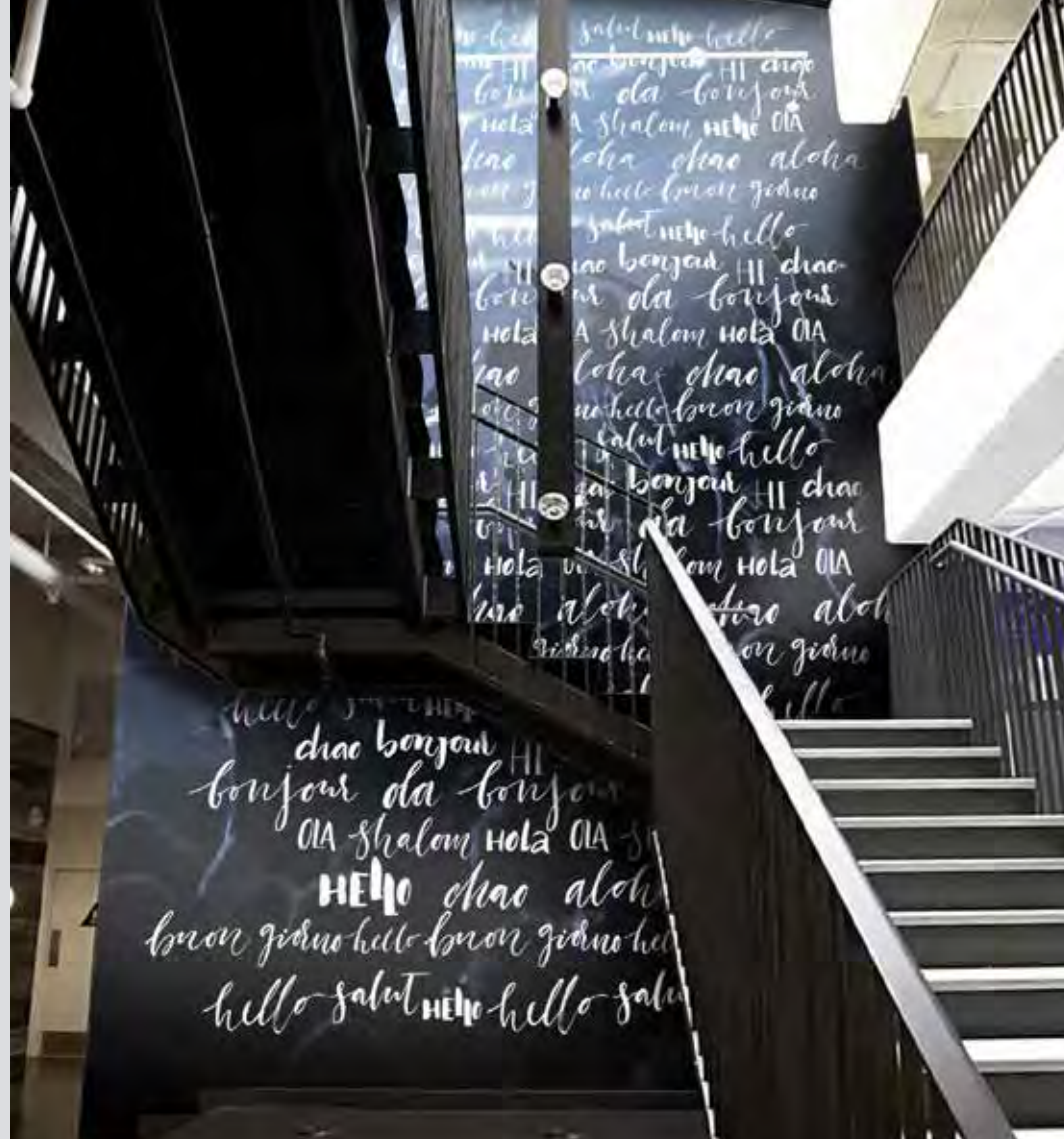 hello salut HEllo hello
HI chao bonjour HI chao
bonjour ola bonjour
HOLA shalom HEllo OlA
chao aloha chao aloha
giorno hello buon giorno
hello salut HEllo hello
HI chao bonjour HI chao
bonjour ola bonjour
HOLA shalom HOLA OlA
aloha chao aloha
hello buon giorno
salut HEllo hello
HI bonjour HI chao
bonjour
HOLA HOLA OlA
chao
giorno giorno
hello
hello salut HEllo
chao bonjour HI
bonjour ola bonjour
OlA shalom HOLA OlA
HEllo chao
buon giorno hello buon giorno
hello salut HEllo hello salut